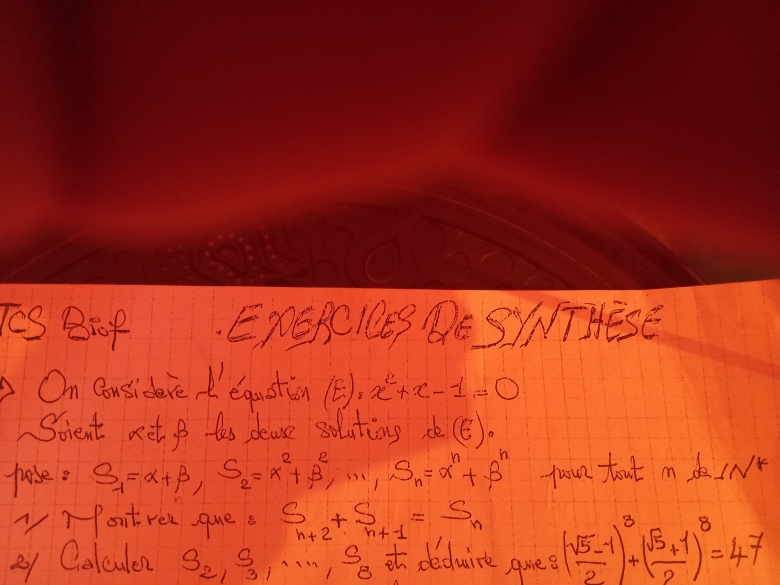 TCS Biof EXERCICES DE SYNTHÈSE
On Considère l'équation (E): x²+x-1=0
Soient α et β les deux solutions de (E).
pose: S₁=α+β, S₂=α²+β², ..., Sₙ=αⁿ+βⁿ pour tout n de IN*
1/ Montrer que: Sₙ₊₂+Sₙ₊₁ = Sₙ
2/ Calculer S₂, S₃, ...., S₈ et déduire que: ((√5-1)/2)⁸+((√5+1)/2)⁸=47